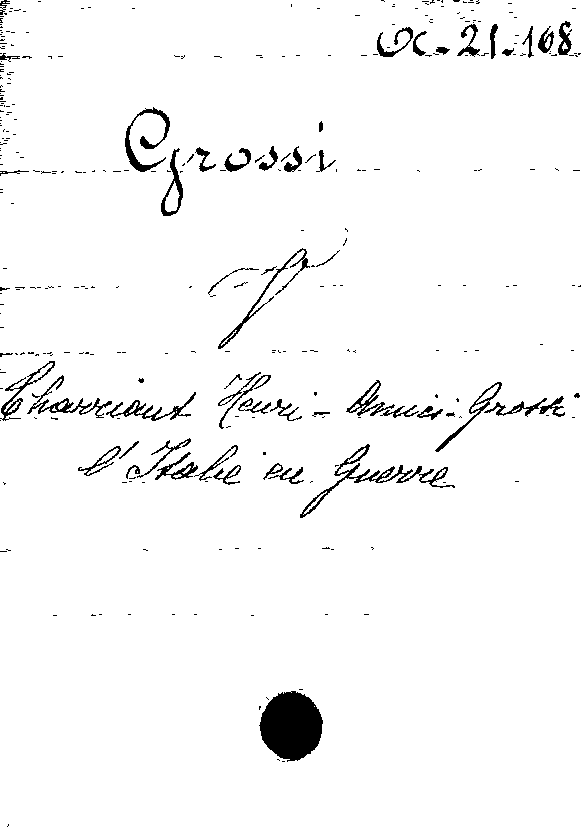 α-21-168
Grossi
V
Charriaut Henri - Amici-Grossi
l'Italie en Guerre